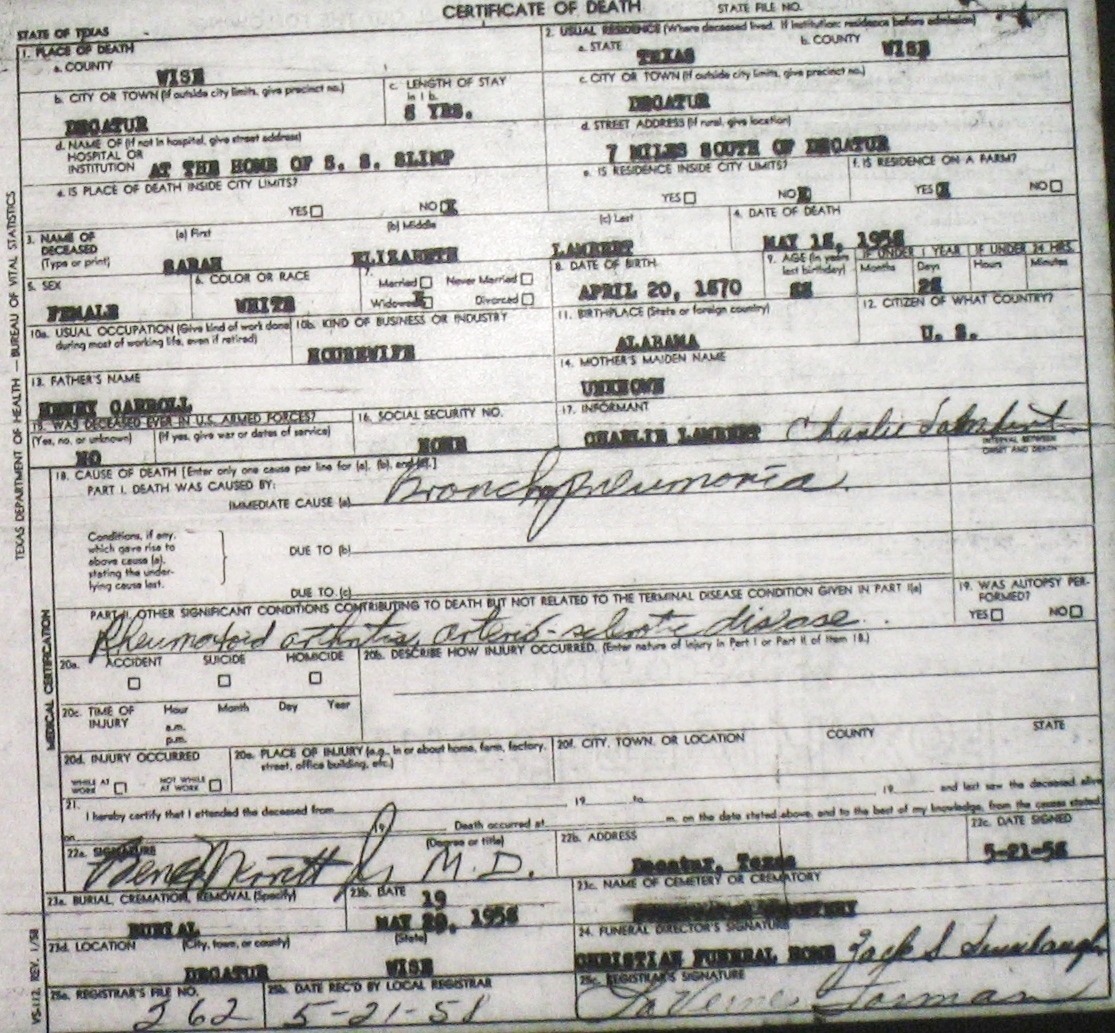 CERTIFICATE OF DEATH STATE FILE NO.
STATE OF TEXAS
1. PLACE OF DEATH
a. COUNTY
WISE
2. USUAL RESIDENCE (Where deceased lived. If institution: residence before admission)
a. STATE TEXAS b. COUNTY WISE
b. CITY OR TOWN (If outside city limits, give precinct no.)
DECATUR
c. LENGTH OF STAY
in 1 b.
8 YRS.
c. CITY OR TOWN (If outside city limits, give precinct no.)
DECATUR
d. NAME OF (If not in hospital, give street address)
HOSPITAL OR
INSTITUTION AT THE HOME OF S. S. SLIMP
d. STREET ADDRESS (If rural, give location)
7 MILES SOUTH OF DECATUR
e. IS PLACE OF DEATH INSIDE CITY LIMITS?
YES NO X
e. IS RESIDENCE INSIDE CITY LIMITS?
YES NO X
f. IS RESIDENCE ON A FARM?
YES X NO
3. NAME OF
DECEASED
(Type or print)
(a) First
SARAH
(b) Middle
ELIZABETH
(c) Last
LAMBERT
4. DATE OF DEATH
MAY 18, 1958
5. SEX
FEMALE
6. COLOR OR RACE
WHITE
7.
Married Never Married
Widowed X Divorced
8. DATE OF BIRTH
APRIL 20, 1870
9. AGE (In years
last birthday)
88
IF UNDER 1 YEAR
Months Days
28
IF UNDER 24 HRS.
Hours Minutes
10a. USUAL OCCUPATION (Give kind of work done
during most of working life, even if retired)
10b. KIND OF BUSINESS OR INDUSTRY
HOUSEWIFE
11. BIRTHPLACE (State or foreign country)
ALABAMA
12. CITIZEN OF WHAT COUNTRY?
U. S.
13. FATHER'S NAME
HENRY CARROLL
14. MOTHER'S MAIDEN NAME
UNKNOWN
15. WAS DECEASED EVER IN U.S. ARMED FORCES?
(Yes, no, or unknown) (If yes, give war or dates of service)
NO
16. SOCIAL SECURITY NO.
NONE
17. INFORMANT
CHARLIE LAMBERT Charlie Lambert
18. CAUSE OF DEATH [Enter only one cause per line for (a), (b), and (c).]
INTERVAL BETWEEN
ONSET AND DEATH
PART I. DEATH WAS CAUSED BY:
IMMEDIATE CAUSE (a) Bronchopneumonia
Conditions, if any,
which gave rise to
above cause (a),
stating the under-
lying cause last.
DUE TO (b)
DUE TO (c)
PART II. OTHER SIGNIFICANT CONDITIONS CONTRIBUTING TO DEATH BUT NOT RELATED TO THE TERMINAL DISEASE CONDITION GIVEN IN PART I(a)
Rheumatoid arthritis, arterio-sclerotic disease.
19. WAS AUTOPSY PER-
FORMED?
YES NO
20a. ACCIDENT SUICIDE HOMICIDE
20b. DESCRIBE HOW INJURY OCCURRED. (Enter nature of injury in Part I or Part II of Item 18.)
20c. TIME OF
INJURY
Hour Month Day Year
a.m.
p.m.
20d. INJURY OCCURRED
WHILE AT
WORK
NOT WHILE
AT WORK
20e. PLACE OF INJURY (e.g., in or about home, farm, factory,
street, office building, etc.)
20f. CITY, TOWN, OR LOCATION COUNTY STATE
21.
I hereby certify that I attended the deceased from 19 to 19 and last saw the deceased alive
on 19 Death occurred at m. on the date stated above, and to the best of my knowledge, from the causes stated.
22a. SIGNATURE (Degree or title)
Jr M.D.
22b. ADDRESS
Decatur, Texas
22c. DATE SIGNED
5-21-58
23a. BURIAL, CREMATION, REMOVAL (Specify)
BURIAL
23b. DATE
19
MAY 20, 1958
23c. NAME OF CEMETERY OR CREMATORY
CEMETERY
23d. LOCATION (City, town, or county) (State)
DECATUR WISE
24. FUNERAL DIRECTOR'S SIGNATURE
CHRISTIAN FUNERAL HOME Jack S.
25a. REGISTRAR'S FILE NO.
262
25b. DATE REC'D BY LOCAL REGISTRAR
5-21-58
25c. REGISTRAR'S SIGNATURE
LaVerne Forman
TEXAS DEPARTMENT OF HEALTH — BUREAU OF VITAL STATISTICS
MEDICAL CERTIFICATION
VS-112, REV. 1/58